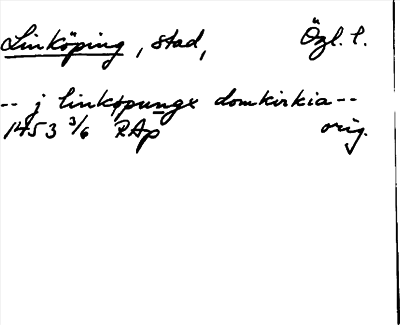 Linköping, stad, Özl. l.
-- j linkøpungx domkirkia --
1453 3/6 RAp orig.